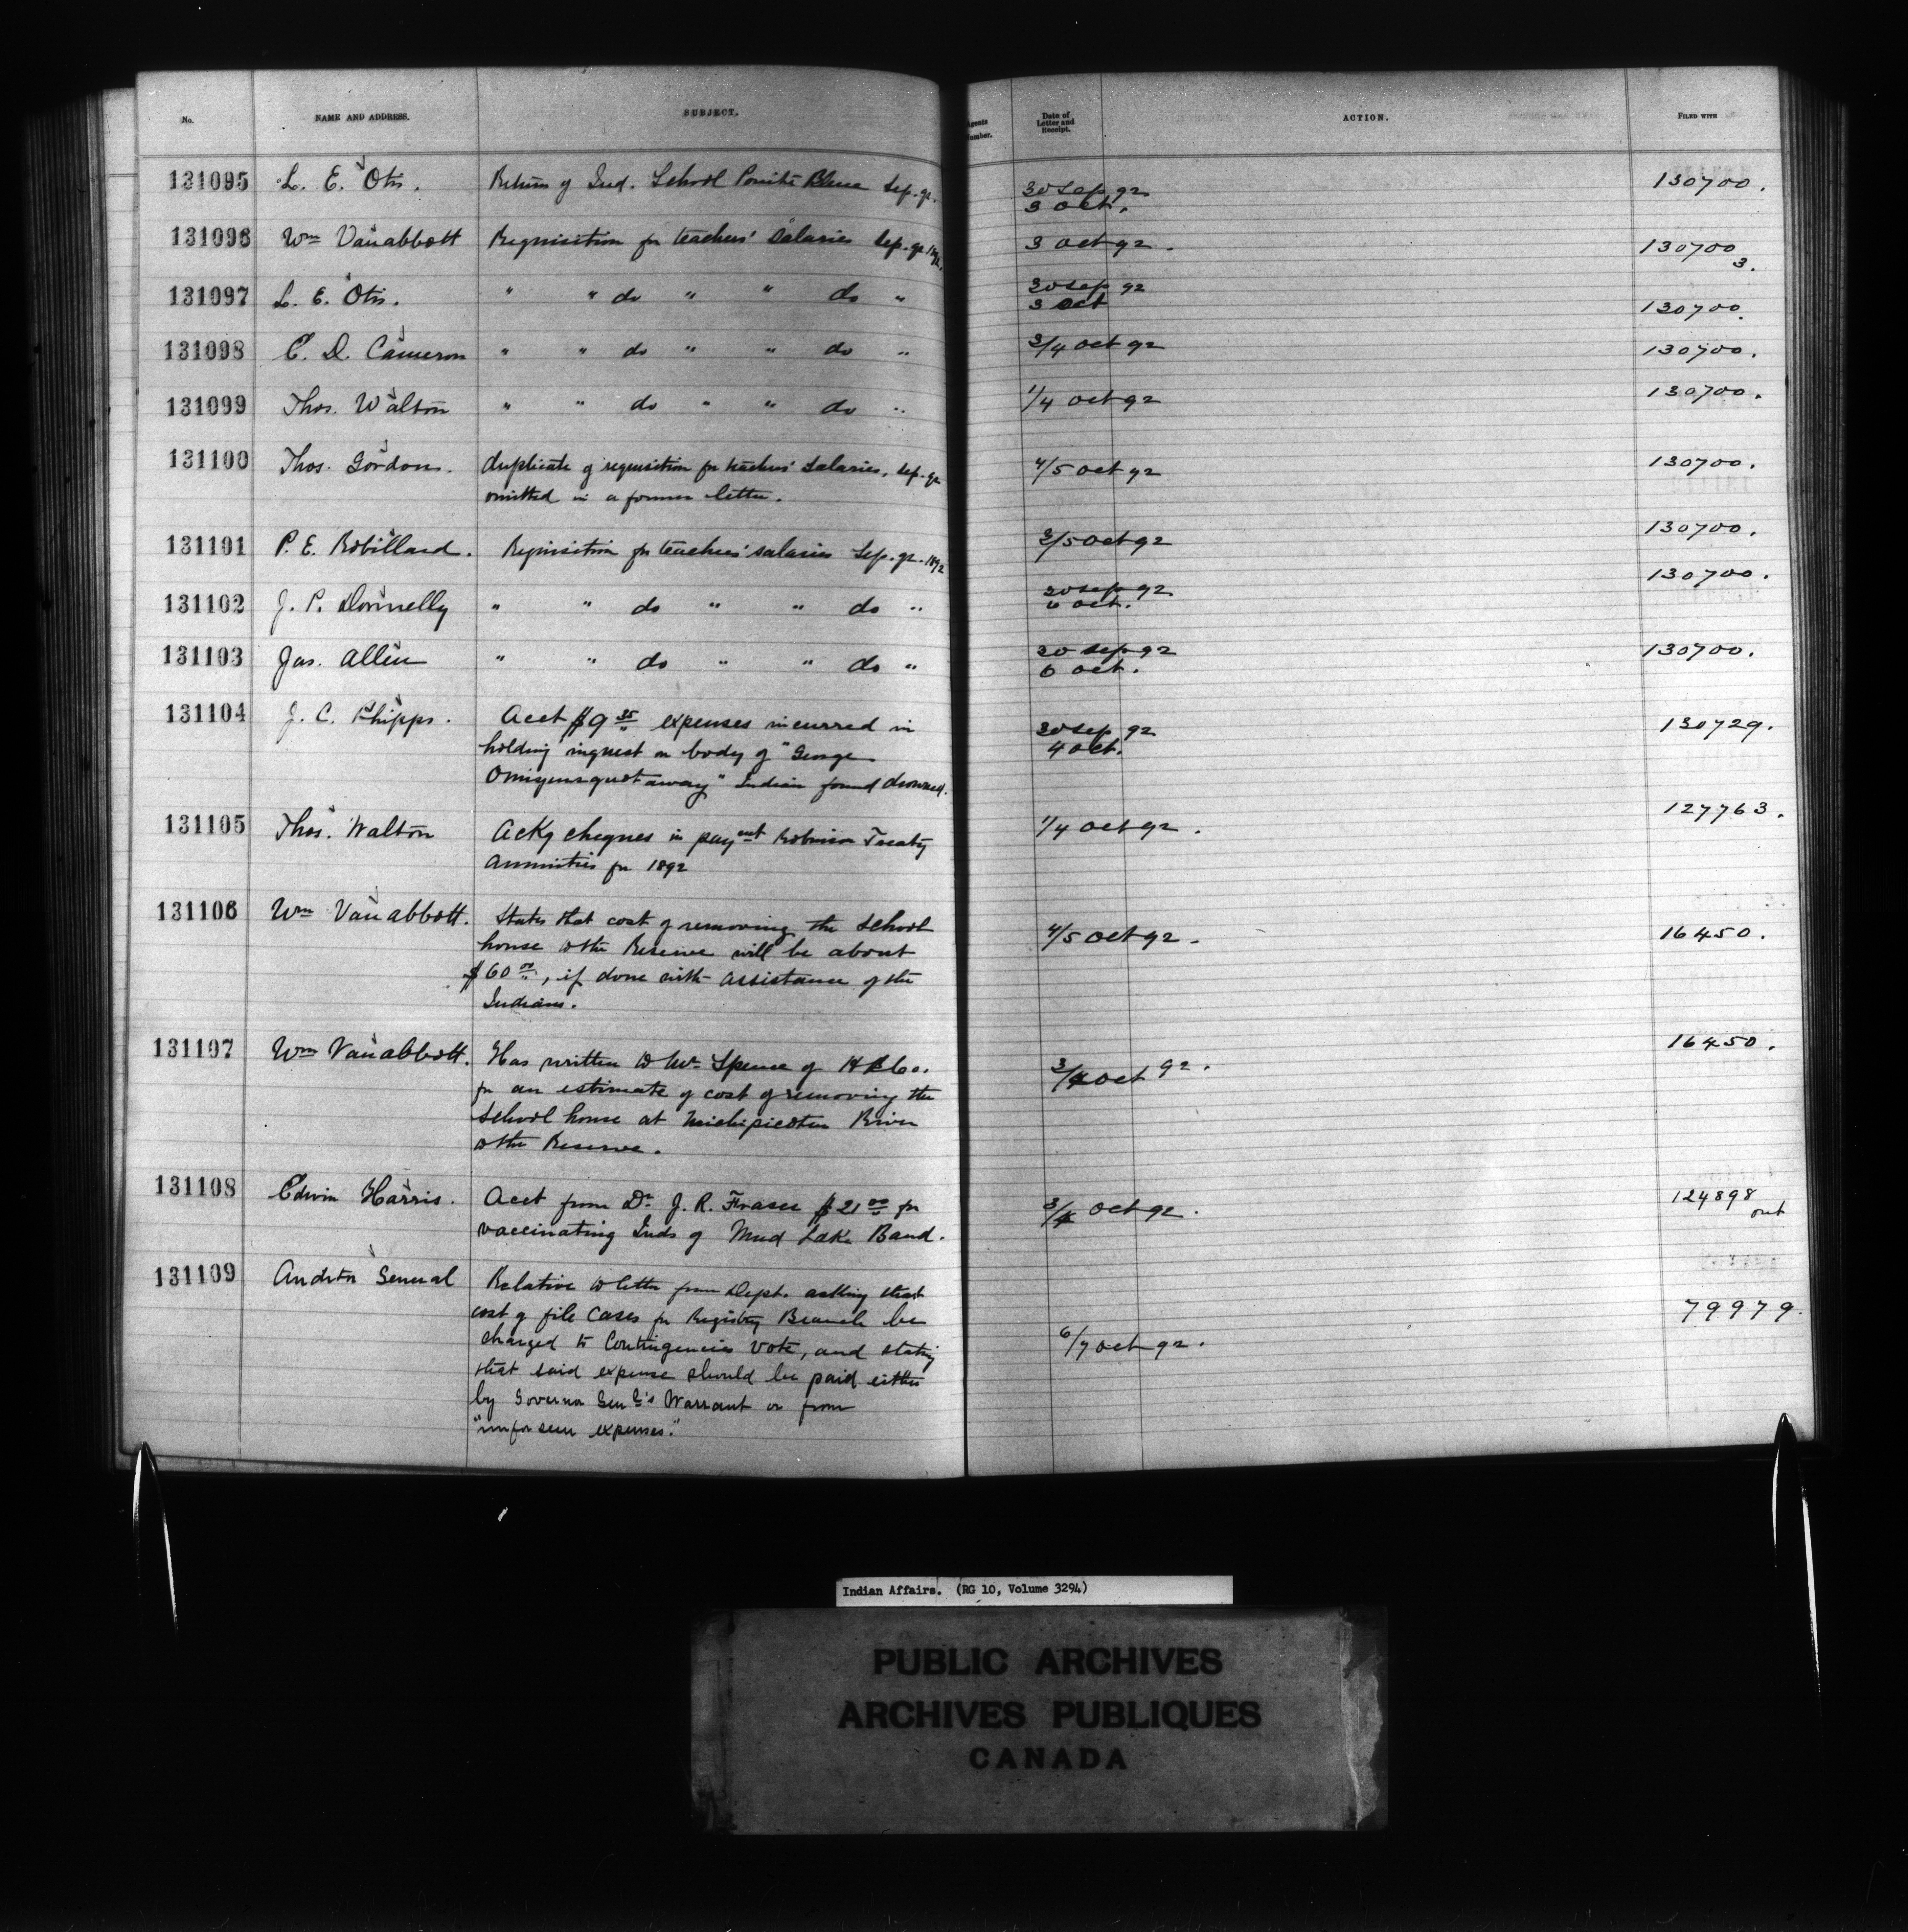 No. NAME AND ADDRESS. SUBJECT. Agents Number. Date of Letter and Receipt. ACTION. FILED WITH
131095 L. E. Otis. Return of Ind. School Pointe Bleue Sep. qr. 30 Sep 92 130700.
3 Oct.
131096 Wm Van abbott Requisition for teachers' salaries Sep. qr. 1892. 3 Oct 92. 130700
3.
131097 L. E. Otis. " " do " " do " 30 Sep 92 130700.
3 Oct
131098 E. D. Cameron " " do " " do " 3/4 Oct 92 130700.
131099 Thos. Walton " " do " " do " 1/4 Oct 92 130700.
131100 Thos. Gordon. duplicate of requisition for teachers' salaries, Sep. qr 4/5 Oct 92 130700.
omitted in a former letter.
131101 P. E. Robillard. Requisition for teachers' salaries Sep. qr. 1892 3/5 Oct 92 130700.
131102 J. P. Donnelly " " do " " do " 30 Sep 92 130700.
6 Oct.
131103 Jas. Allen " " do " " do " 30 Sep 92 130700.
6 Oct.
131104 J. C. Phipps. Acct $9 35 expenses incurred in 30 Sep 92 130729.
holding inquest on body of "George 4 Oct.
" Indian found drowned.
131105 Thos. Walton Ackg cheques in payment Robinson Treaty 1/4 Oct 92. 127763.
Annuities for 1892
131106 Wm Van abbott. States that cost of removing the School 4/5 Oct 92. 16450.
house to the Reserve will be about
$60 00, if done with assistance of the
Indians.
131107 Wm Van abbott. Has written to Mr Spence of H B Co. 3/4 Oct 92. 16450.
for an estimate of cost of removing the
School house at Michipicoten River
to the Reserve.
131108 Edwin Harris. Acct from Dr J. R. Fraser $21 00 for 3/4 Oct 92. 124898
vaccinating Inds of Mud Lake Band. out
131109 Auditor General Relative to letter from Dept. asking that 6/7 Oct 92. 79979.
cost of file cases for Registry Branch be
charged to Contingencies vote, and stating
that said expense should be paid either
by Governor Genl's Warrant or from
"unforseen expenses."
Indian Affairs. (RG 10, Volume 3294)
PUBLIC ARCHIVES
ARCHIVES PUBLIQUES
CANADA